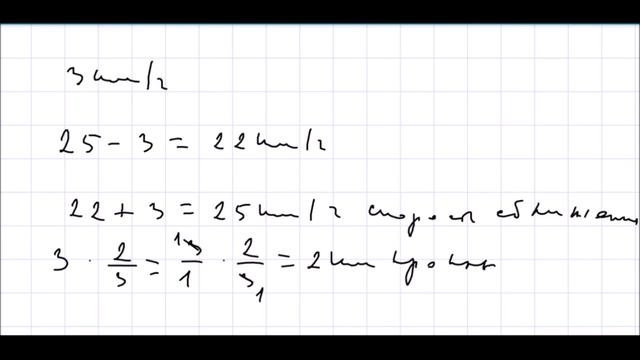 3 км/ч
25 - 3 = 22 км/ч
22 + 3 = 25 км/ч скорость сближения
3 · 2/3 = 3/1 · 2/3 = 2 км